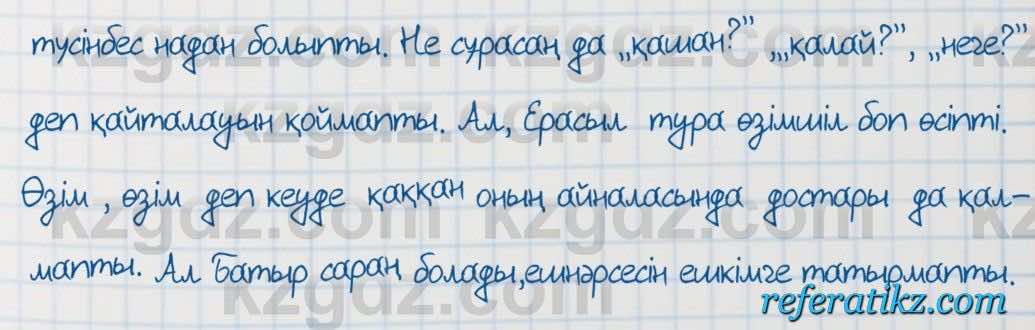 түсінбес надан болыпты. Не сұрасаң да „қашан?” „қалай?”, „неге?”
деп қайталауын қоймапты. Ал, Ерасыл тұра өзімшіл боп өсіпті.
Өзім, өзім деп кеуде қаққан оның айналасында достары да қал-
мапты. Ал Батыр сараң болады, ешнәрсесін ешкімге татырмапты.
referatikz.com
kzgdz.com